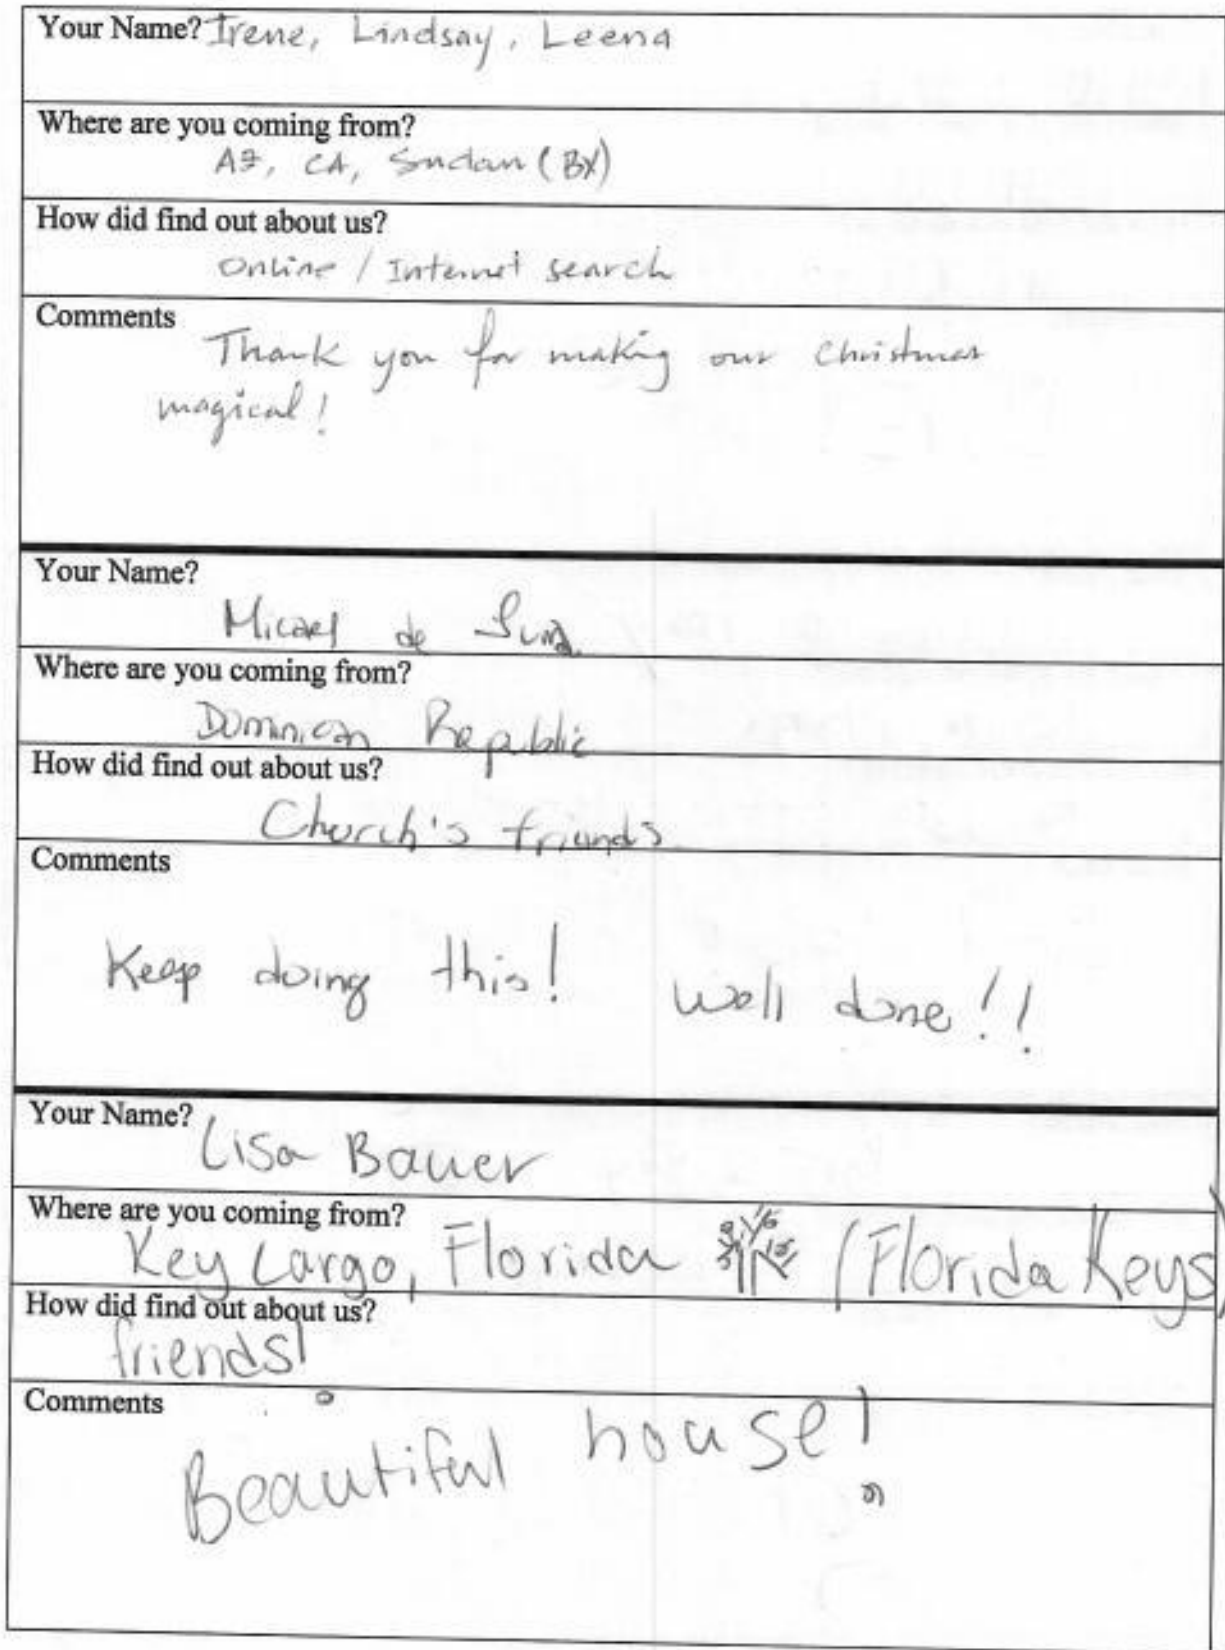 Your Name? Irene, Lindsay, Leena
Where are you coming from?
AZ, CA, Sudan (BX)
How did find out about us?
Online / Internet search
Comments
Thank you for making our Christmas
magical!
Your Name?
Micael de
Where are you coming from?
Dominican Republic
How did find out about us?
Church's friends
Comments
Keep doing this! Well done!!
Your Name?
Lisa Bauer
Where are you coming from?
Key Largo, Florida (Florida Keys)
How did find out about us?
friends!
Comments
Beautiful house!